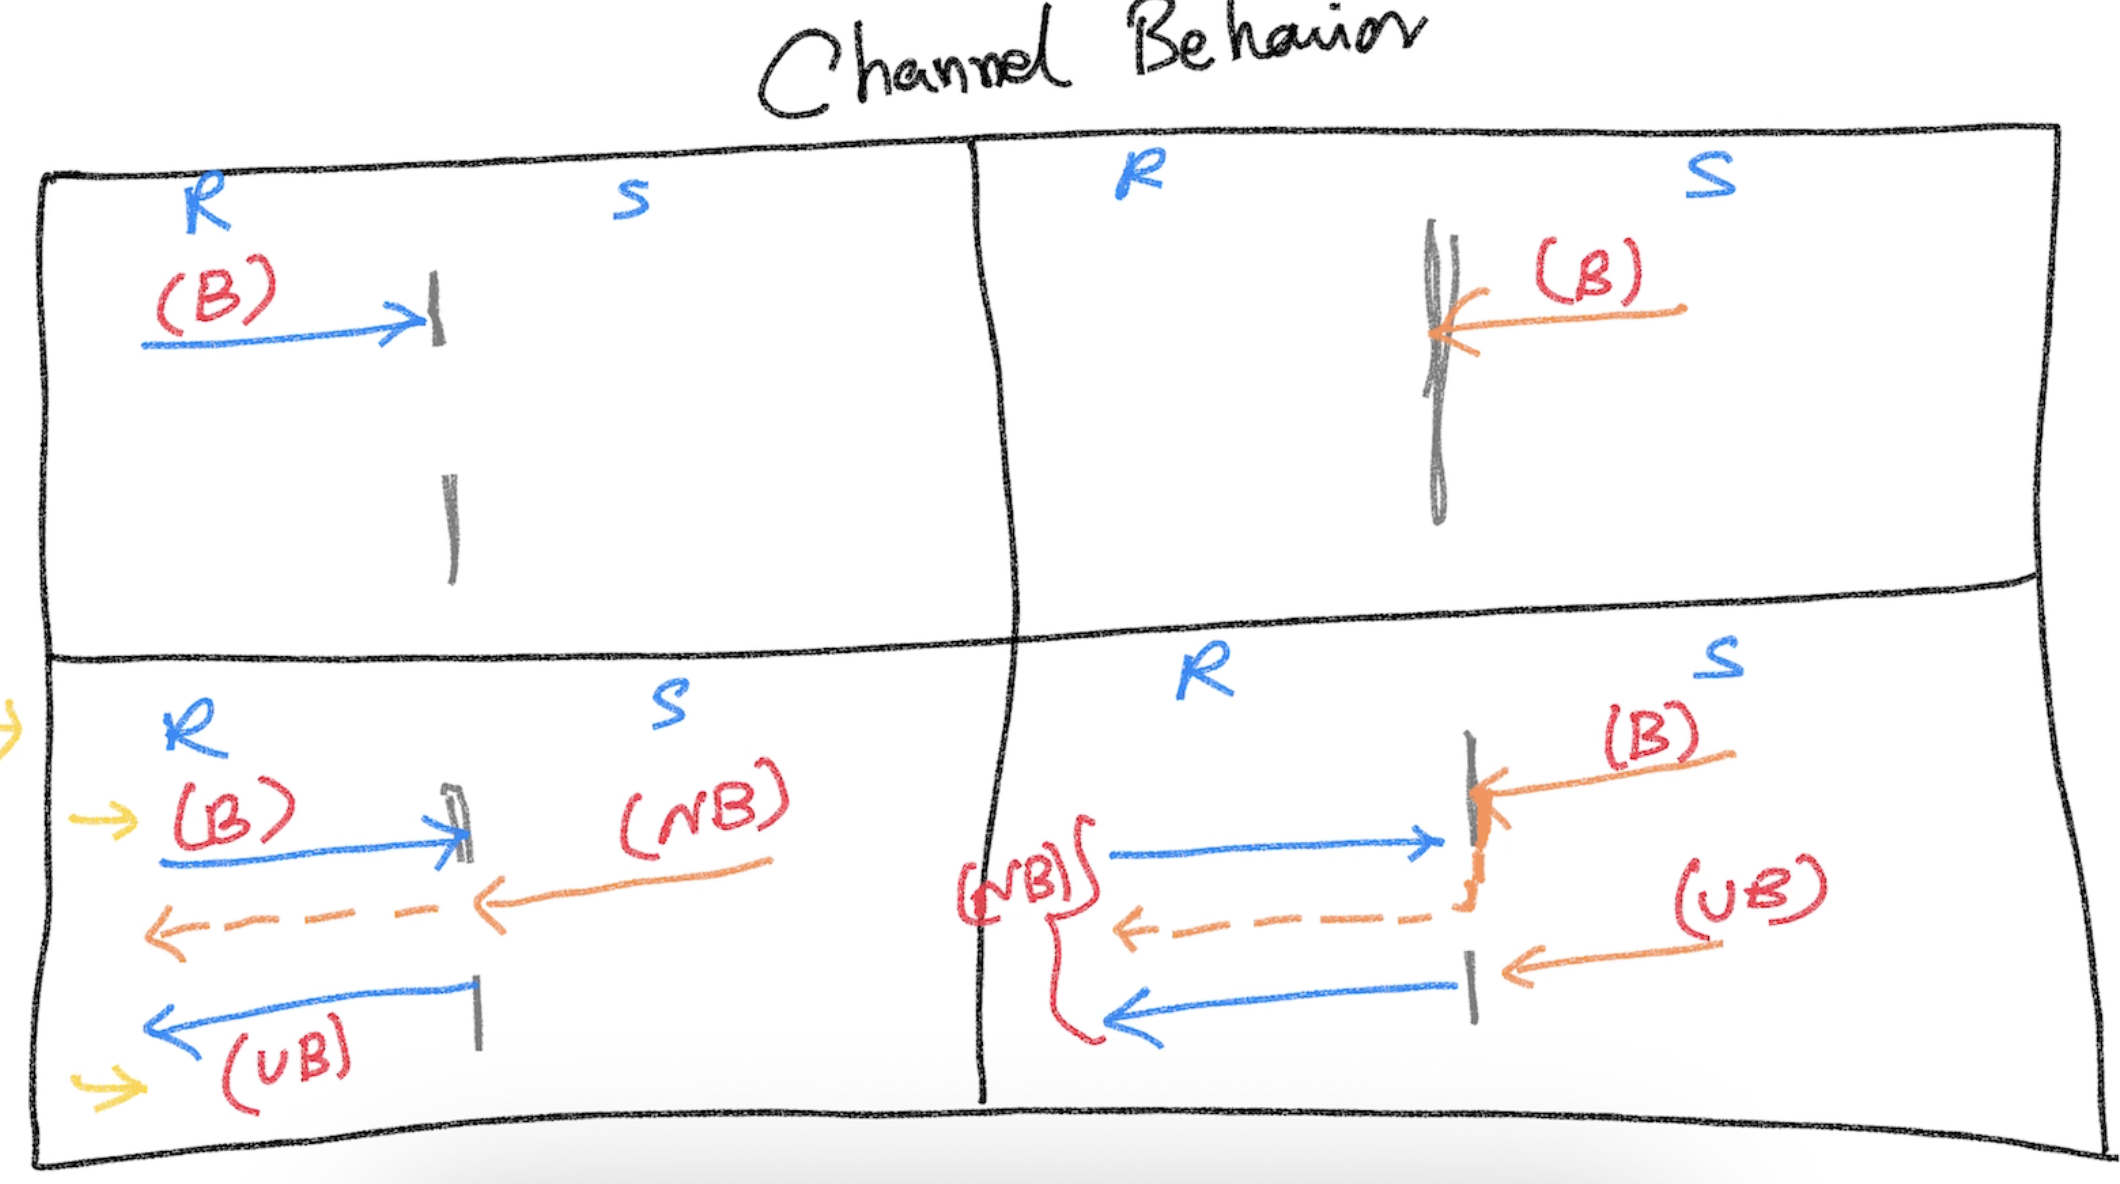 Channel Behavior
R S
(B)
R S
(B)
R S
(B) (NB)
(UB)
R S
(B)
(NB)
(UB)